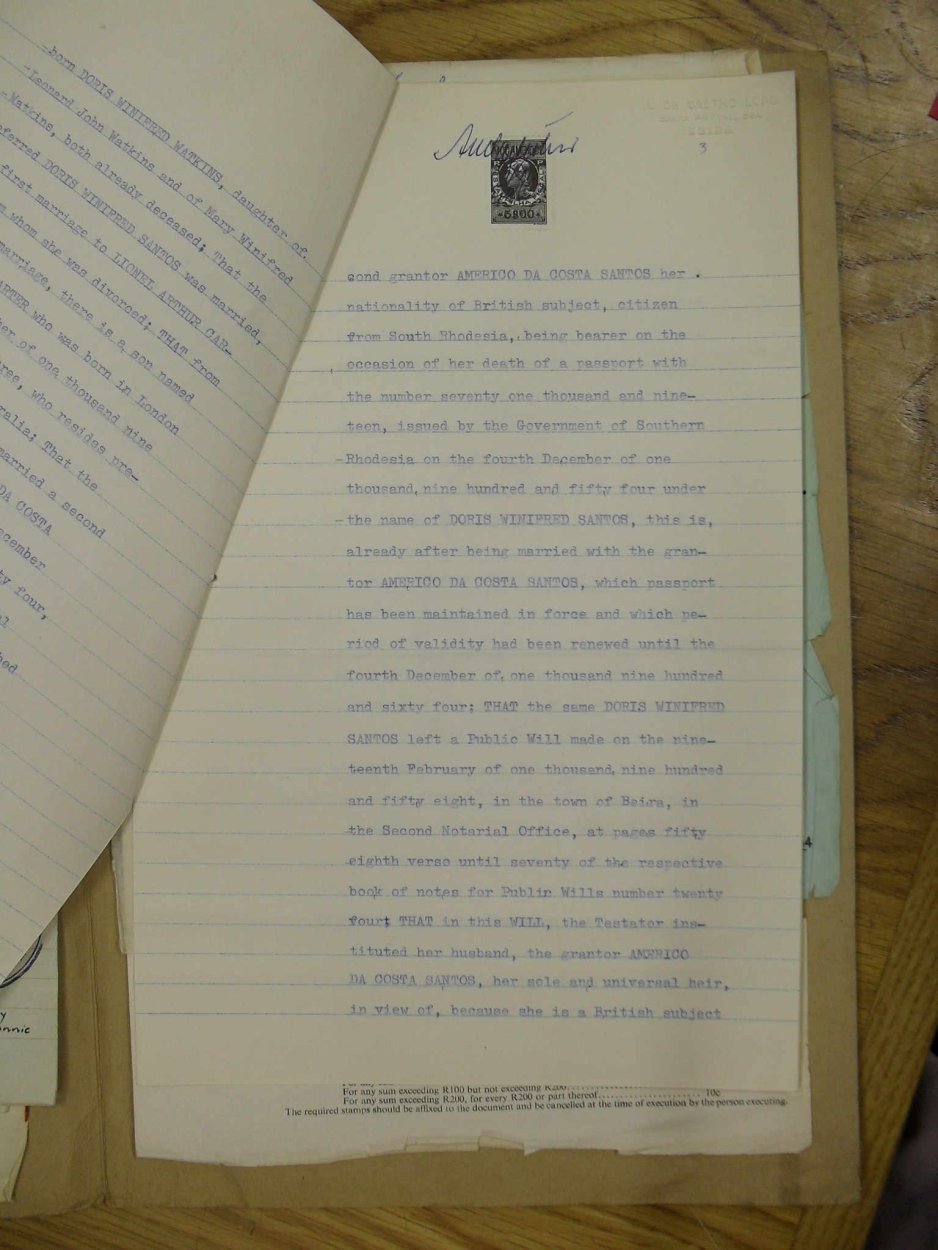 -born DORIS WINIFRED WATKINS, daughter of.
-Leonard John Watkins and of Mary Winifred
-Watkins, both already deceased; That the
eferred DORIS WINIFRED SANTOS was married,
first marriage to LIONEL ARTHUR CAR-
m whom she was divorced; THAT from
marriage, there is a son named
ARTER who was born in London
ber of one thousand nine
ree, who resides pre-
ralia; That the
married a second
DA COSTA
ecember
ty four,
DE CASTRO LOPO
BEIRA
3
5$00
cond grantor AMERICO DA COSTA SANTOS her .
nationality of British subject, citizen
from South Rhodesia, being bearer on the
occasion of her death of a passport with
the number seventy one thousand and nine-
teen, issued by the Government of Southern
-Rhodesia on the fourth December of one
thousand, nine hundred and fifty four under
-the name of DORIS WINIFRED SANTOS, this is,
already after being married with the gran-
tor AMERICO DA COSTA SANTOS, which passport
has been maintained in force and which pe-
riod of validity had been renewed until the
fourth December of, one thousand nine hundred
and sixty four; THAT the same DORIS WINIFRED
SANTOS left a Public Will made on the nine-
teenth February of one thousand, nine hundred
and fifty eight, in the town of Beira, in
the Second Notarial Office, at pages fifty
eighth verso until seventy of the respective
book of notes for Public Wills number twenty
four; THAT in this WILL, the Testator ins-
tituted her husband, the grantor AMERICO
DA COSTA SANTOS, her sole and universal heir,
in view of, because she is a British subject
4
For any sum exceeding R100 but not exceeding R200
For any sum exceeding R200, for every R200 or part thereof ........................ 10c
The required stamps should be affixed to the document and be cancelled at the time of execution by the person executing.